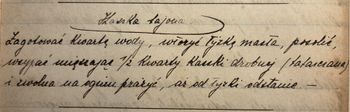 Kaszka łajona
Zagotować kwartę wody, włożyć łyżkę masła, posolić,
wsypać mieszając ½ kwarty kaszki drobnej (tatarczanej)
i zwolna na ogniu prażyć, aż od łyżki odstanie —